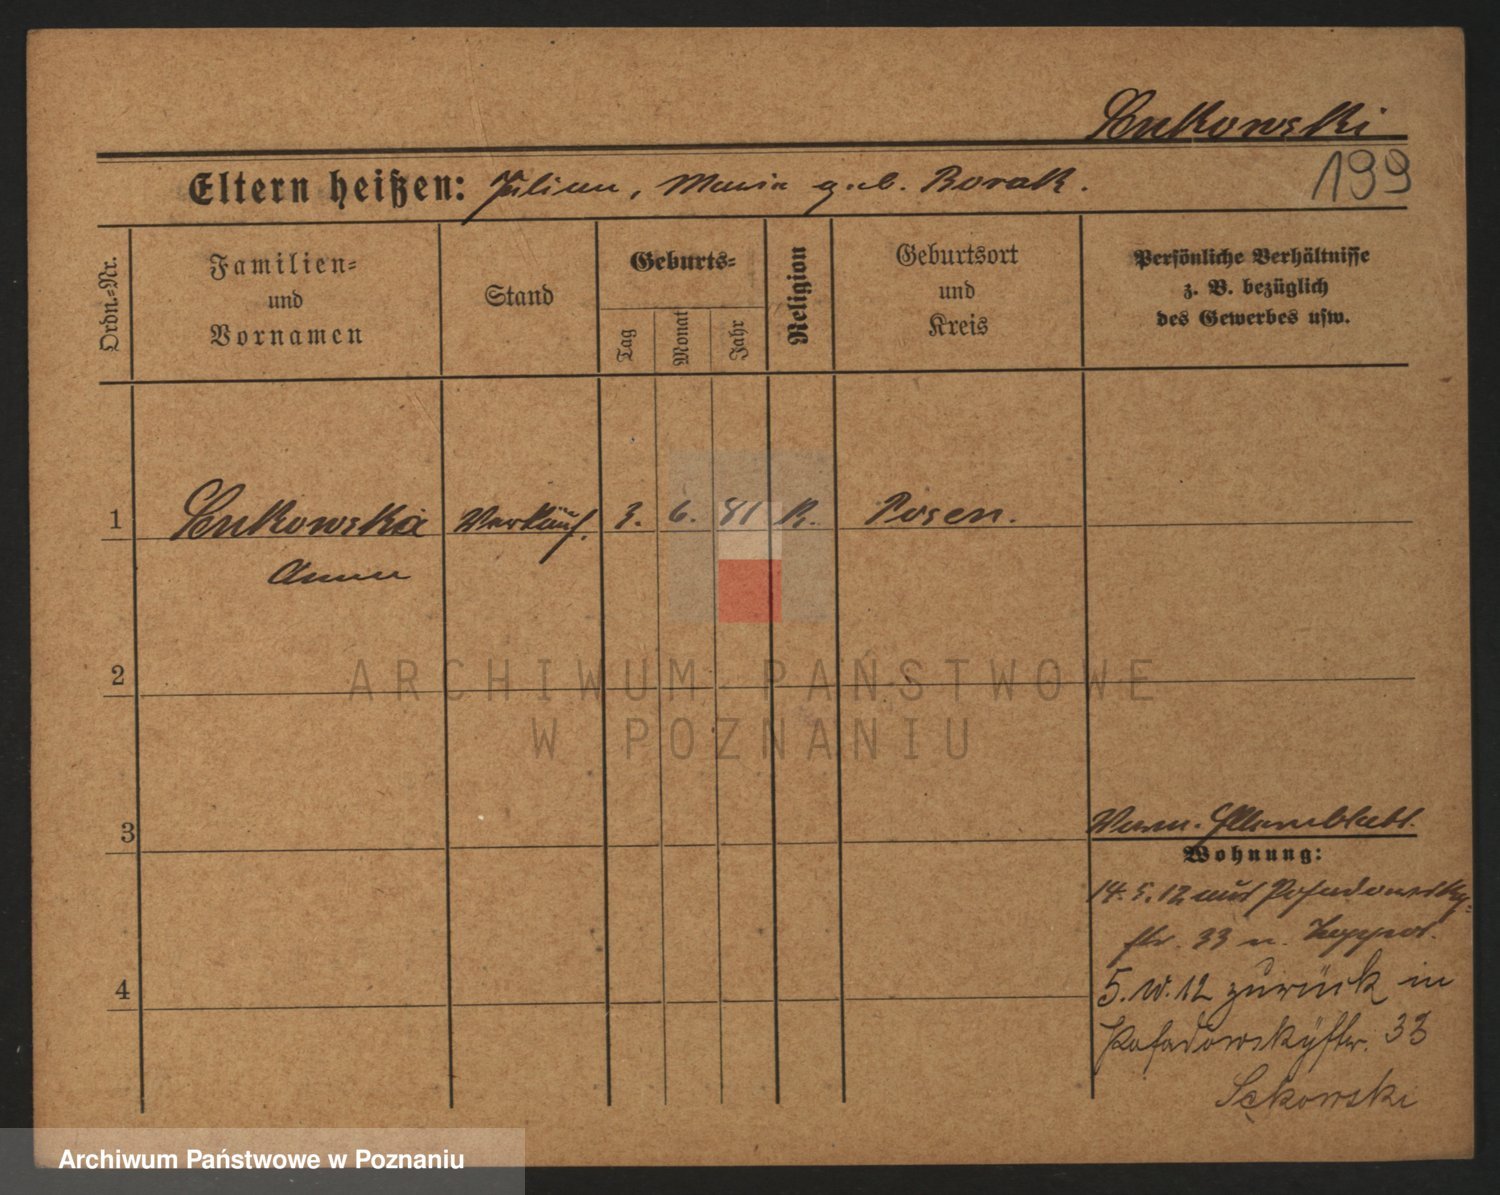 Lukowski
199
Eltern heißen: Julian, Maria geb. Borak.
Ordn.-Nr.
Familien-
und
Vornamen
Stand
Geburts-
Tag
Monat
Jahr
Religion
Geburtsort
und
Kreis
Persönliche Verhältnisse
z. B. bezüglich
des Gewerbes usw.
1 Lukowska Verkäuf. 3. 6. 81 K. Posen.
Anna
2
3
Wohnung:
14.5.12 aus Posadowsky-
str. 33 n. Zoppot.
5. 10. 12 zurück in
Posadowskystr. 33
Sękowski
4
ARCHIWUM PAŃSTWOWE
W POZNANIU
Archiwum Państwowe w Poznaniu